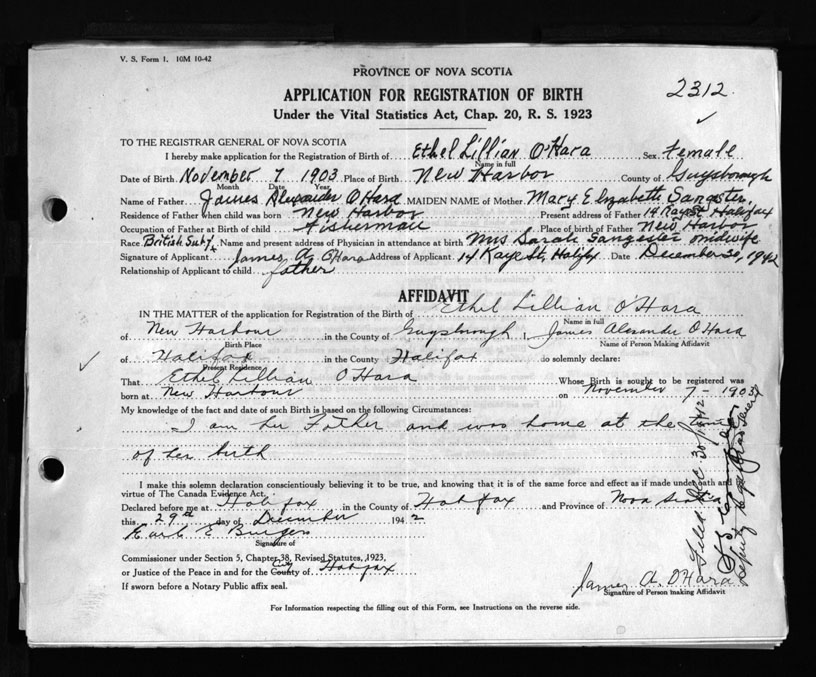 V. S. Form 1. 10M 10-42
PROVINCE OF NOVA SCOTIA
2312
APPLICATION FOR REGISTRATION OF BIRTH
Under the Vital Statistics Act, Chap. 20, R. S. 1923
TO THE REGISTRAR GENERAL OF NOVA SCOTIA
I hereby make application for the Registration of Birth of Ethel Lillian O'Hara Sex Female
Name in full
Date of Birth November 7 1903 Place of Birth New Harbor County of Guysborough
Month Date Year
Name of Father James Alexander O'Hara MAIDEN NAME of Mother Mary Elizabeth Sangster
Residence of Father when child was born New Harbor Present address of Father 14 Kaye St Halifax
Occupation of Father at Birth of child Fisherman Place of birth of Father New Harbor
Race British Subj Name and present address of Physician in attendance at birth Mrs Sarah Sangster midwife
Signature of Applicant James A. O'Hara Address of Applicant 14 Kaye St, Halifax Date December 30, 1942
Relationship of Applicant to child father
AFFIDAVIT
IN THE MATTER of the application for Registration of the Birth of Ethel Lillian O'Hara
Name in full
of New Harbour in the County of Guysborough I, James Alexander O'Hara
Birth Place Name of Person Making Affidavit
of Halifax in the County Halifax do solemnly declare:
Present Residence
That Ethel Lillian O'Hara Whose Birth is sought to be registered was
born at New Harbour on November 7 - 1903
My knowledge of the fact and date of such Birth is based on the following Circumstances:
I am her Father and was home at the time
of her birth
I make this solemn declaration conscientiously believing it to be true, and knowing that it is of the same force and effect as if made under oath and
virtue of The Canada Evidence Act.
Declared before me at Halifax in the County of Halifax and Province of Nova Scotia
this 29th day of December 1942
Earle E Burgess
Signature of
Commissioner under Section 5, Chapter 38, Revised Statutes, 1923,
or Justice of the Peace in and for the City County of Halifax
If sworn before a Notary Public affix seal.
James A. O'Hara
Signature of Person making Affidavit
For Information respecting the filling out of this Form, see Instructions on the reverse side.
Filed Dec 30/42
Deputy Registrar